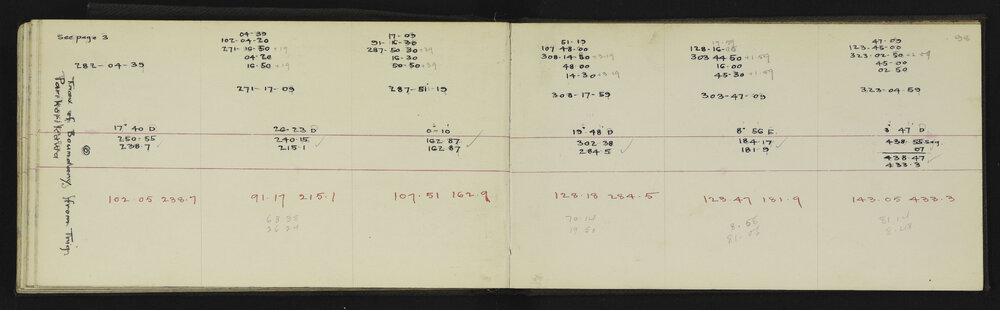 See page 3
282-04-39
Trav of Boundary from Trig
17° 40 D
250·55
238·7
102·05 238·7
04-39
102-04-20
271-16-50 +19
04-20
16-50 +19
271-17-09
26-23 D
240·15
215·1
91·17 215·1
17-09
91-16-30
287-50 30 +39
16-30
50-50 +39
287-51-19
0-10
162 87
162 87
107·51 162·9
51-19
107 48-00
308-14-50 +3-19
48 00
14-30 +3-19
308-17-59
19° 48 D
302 38
284·5
128·18 284·5
17-09
128-16-00
303 44 50 +1-59
16-00
45-30 +1-59
303-47-09
8° 56 E
184·17
181·9
123·47 181·9
98
47-09
123-45-00
323-02-50 +2-09
45-00
02 50
323-04-59
8° 47 D
438·55 say
07
438·47
433·3
143·05 433·3
70·14
19 50